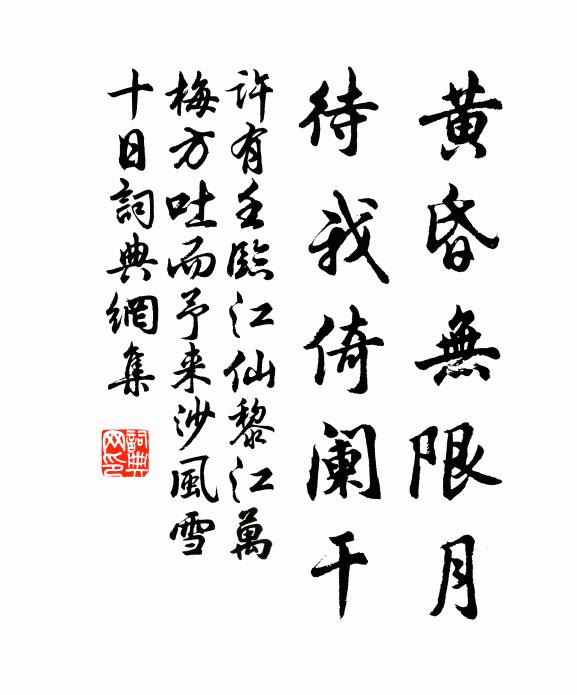 黄昏無限月
待我倚阑干
許有壬臨江仙黎江萬
梅方吐而予来沙風雪
十日詞典網集
詞典网印